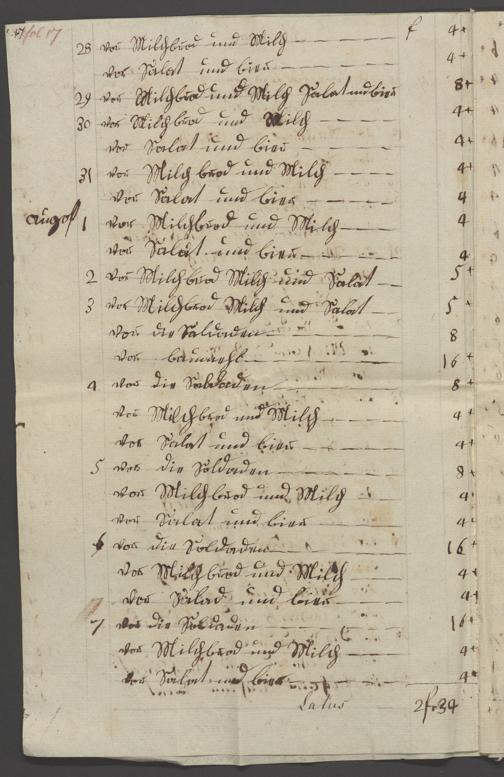 fol 17
28 vor Milchbrod und Milch f 4
vor Salat und bier 4
29 vor Milchbrod und Milch Salat und bier 8
30 vor Milchbrod und Milch 4
vor Salat und bier 4
31 vor Milchbrod und Milch 4
vor Salat und bier 4
august 1 vor Milchbrod und Milch 4
vor Salat und bier 4
2 vor Milchbrod Milch und Salat 5
3 vor Milchbrod Milch und Salat 5
vor die Soldaden 8
vor baumehl 16
4 vor die Soldaden 8
vor Milchbrod und Milch 4
vor Salat und bier 4
5 vor die Soldaden 8
vor Milchbrod und Milch 4
vor Salat und bier 4
6 vor die Soldaden 16
vor Milchbrod und Milch 4
vor Salad und bier 4
7 vor die Soldaden 16
vor Milchbrod und Milch 4
vor Salat und bier 4
Latus 2f 34